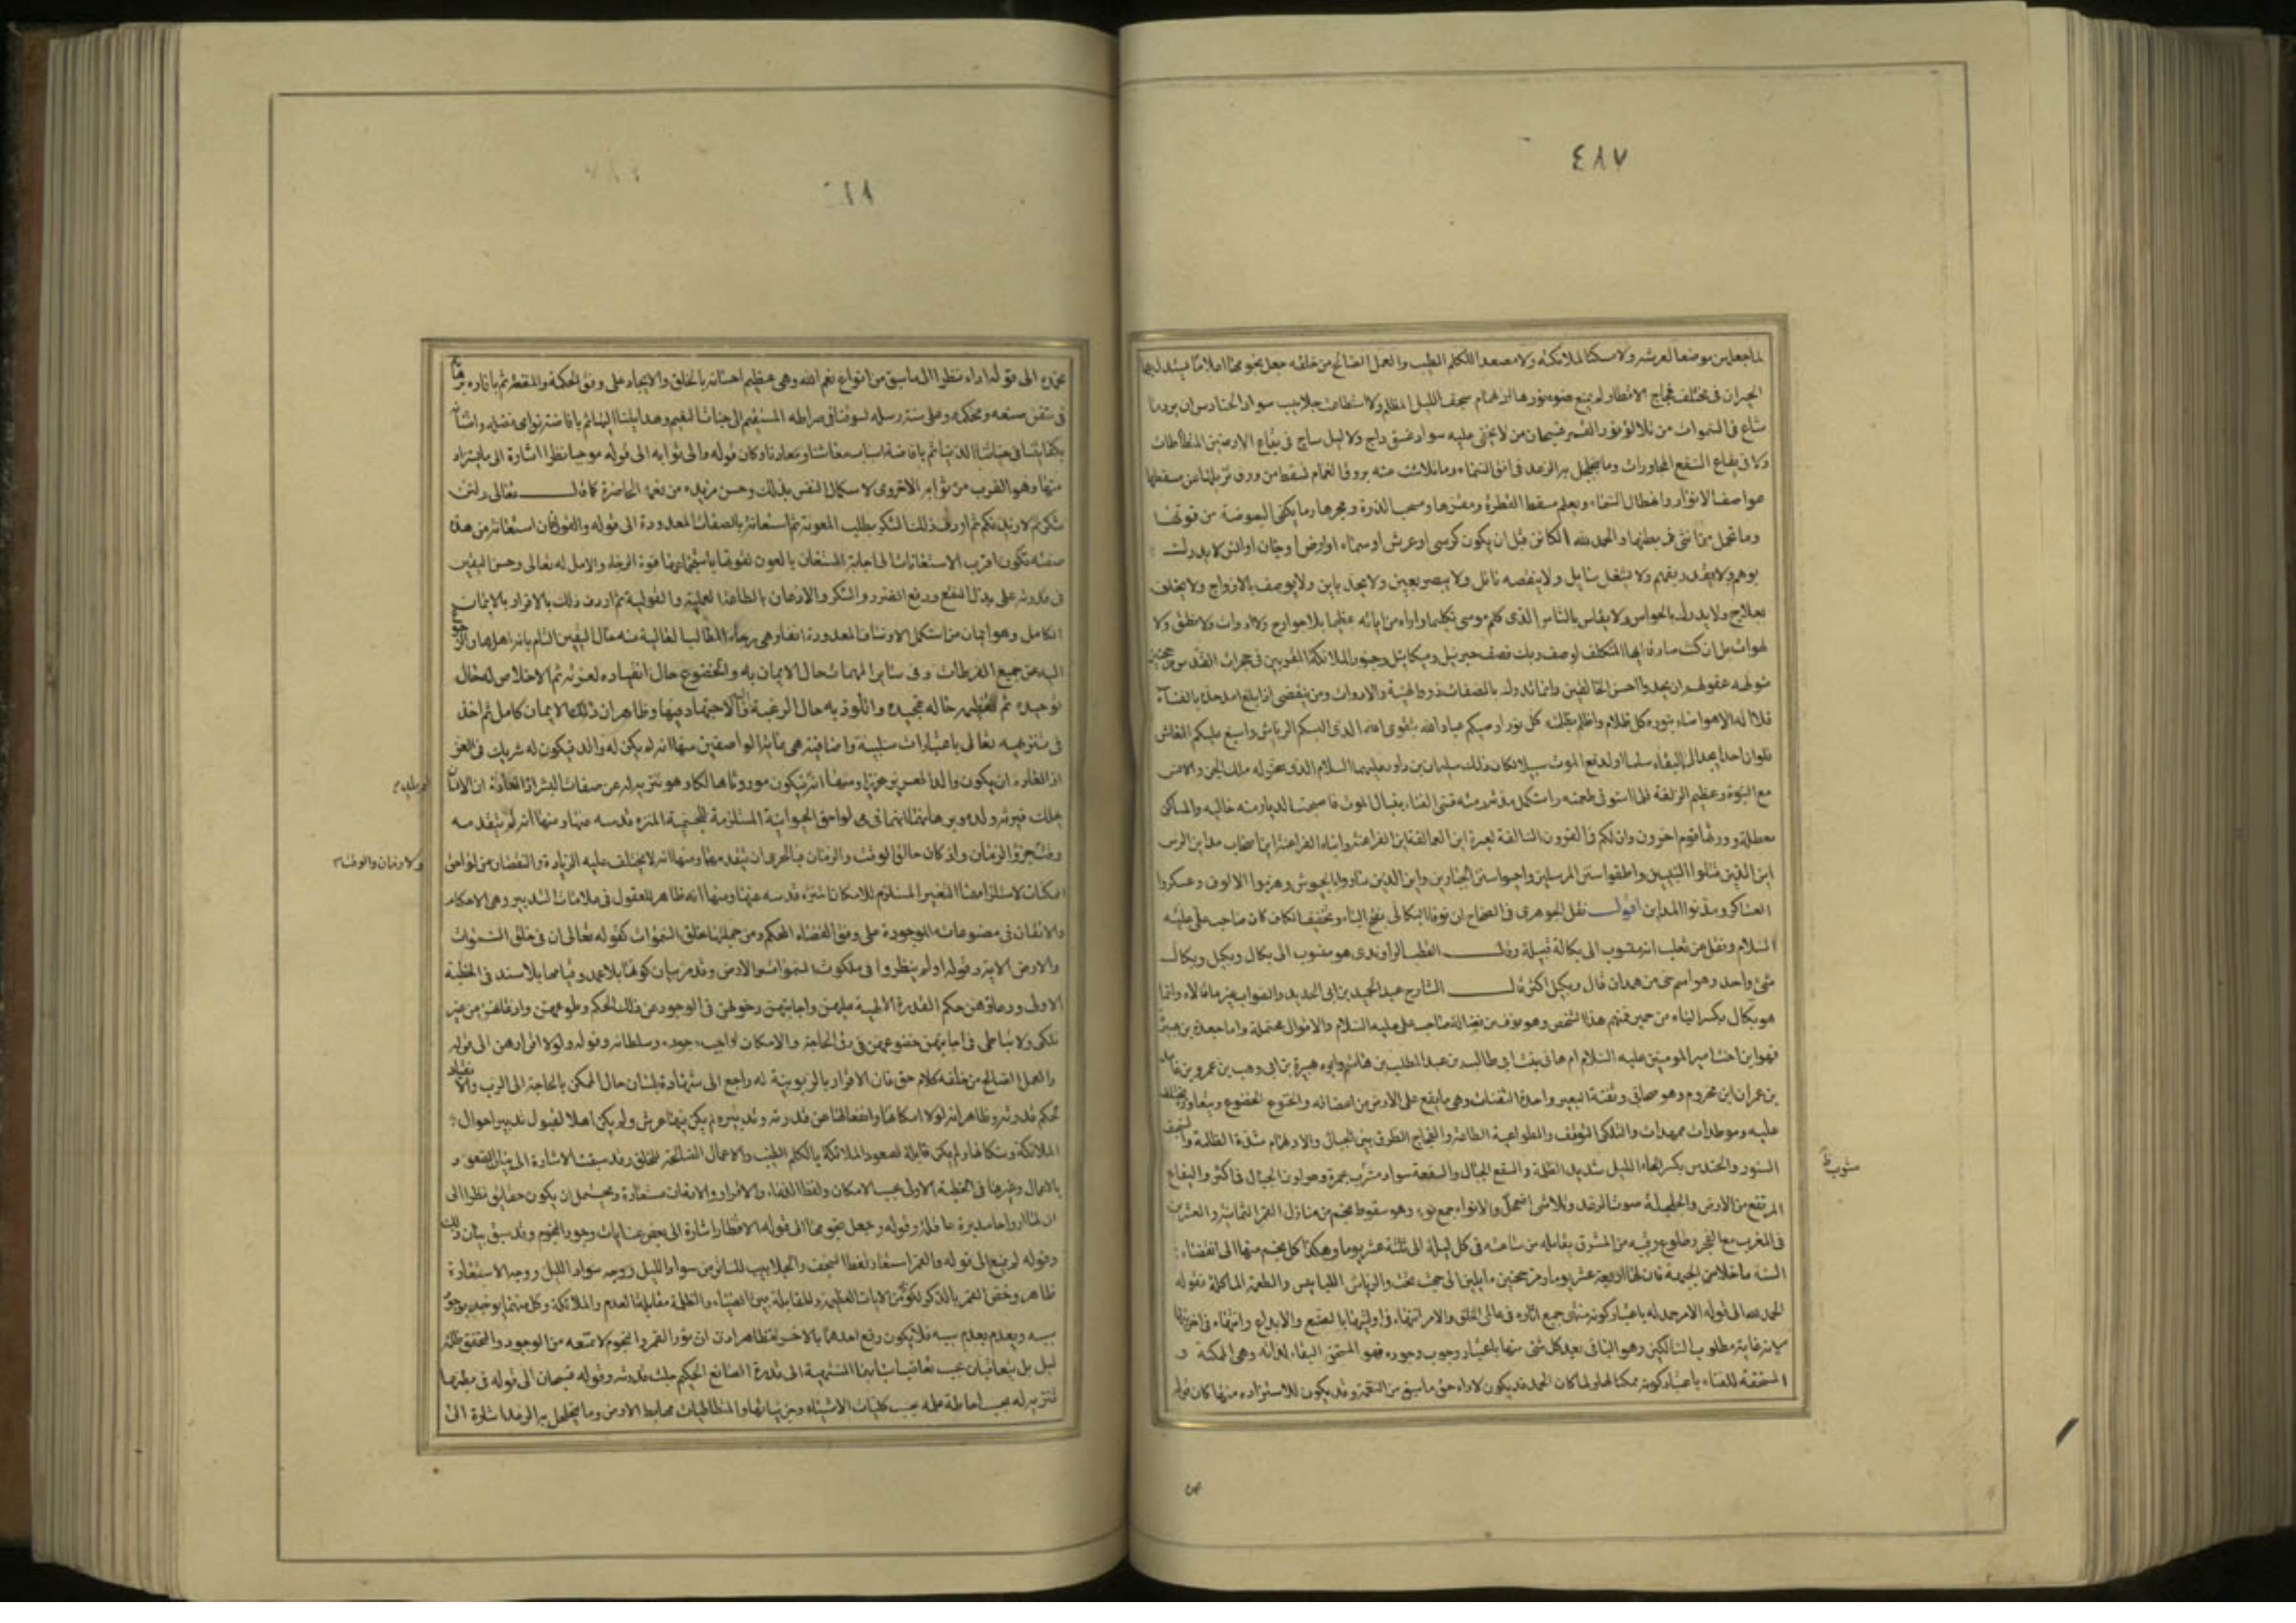 ٤٨٧
لما جعلهن موضعا لعرشه ولا مسكنا لملائكته ولا مصعدا للكلم الطيب والعمل الصالح من خلقه جعل نجومها اعلاما يستدل بها
الحيران فى مختلف فجاج الاقطار لم يمنع ضوء نورها ادلهمام سجف الليل المظلم ولا استطاعت جلابيب سواد الحنادس ان يرد ما
شاع فى السموات من تلالؤ نور القمر فسبحان من لا يخفى عليه سواد غسق داج ولا ليل ساج فى بقاع الارضين المتطأطئات
ولا فى يفاع السفع المجاورات وما يتجلجل به الرعد فى افق السماء وما تلاشت عنه بروق الغمام وما تسقط من ورقة تزيلها عن مسقطها
عواصف الانواء وانهطال السماء ويعلم مسقط القطرة ومقرها ومسحب الذرة ومجرها وما يكفى البعوضة من قوتها
وما تحمل من انثى فى بطنها والحمد لله الكائن قبل ان يكون كرسى او عرش او سماء او ارض او جان او انس لا يدرك
بوهم ولا يقدر بفهم ولا يشغله سائل ولا ينقصه نائل ولا يبصر بعين ولا يحد باين ولا يوصف بالازواج ولا يخلق
بعلاج ولا يدرك بالحواس ولا يقاس بالناس الذى كلم موسى تكليما واراه من اياته عظيما بلا جوارح ولا ادوات ولا نطق ولا
لهوات بل ان كنت صادقا ايها المتكلف لوصف ربك فصف جبرئيل وميكائيل وجنود الملائكة المقربين فى حجرات القدس مرجحنين
متولهة عقولهم ان يحدوا احسن الخالقين وانما يدرك بالصفات ذوو الهيئة والادوات ومن ينقضى اذا بلغ امد حده بالفناء
فلا اله الا هو اضاء بنوره كل ظلام واظلم بظلمته كل نور اوصيكم عباد الله بتقوى الله الذى البسكم الرياش واسبغ عليكم المعاش
فلو ان احدا يجد الى البقاء سلما او لدفع الموت سبيلا لكان ذلك سليمان بن داود عليهما السلام الذى سخر له ملك الجن والانس
مع النبوة وعظيم الزلفة فلما استوفى طعمته واستكمل مدته رمته قسى الفناء بنبال الموت فاصبحت الديار منه خالية والمساكن
معطلة وورثها قوم اخرون وان لكم فى القرون السالفة لعبرة اين العمالقة وابناء العمالقة اين الفراعنة وابناء الفراعنة اين اصحاب مداين الرس
اين الذين قتلوا النبيين واطفؤا سنن المرسلين واحيوا سنن الجبارين واين الذين ساروا بالجيوش وهزموا الالوف وعسكروا
العساكر ومدنوا المداين اقول نقل الجوهرى فى الصحاح ان نوفا البكالى بفتح الباء وتخفيف الكاف كان صاحب على عليه
السلام ونقل عن ثعلب انه منسوب الى بكالة قبيلة وقال القطب الراوندى هو منسوب الى بكال وبكيل وبكال
شئ واحد وهو اسم حى من همدان قال وبكيل اكثر قال الشارح عبد الحميد بن ابى الحديد والصواب غير ما قالاه وانما
هو بكال بكسر الباء من حمير فمنهم هذا الشخص وهو نوف بن فضالة صاحب على عليه السلام والاقوال محتملة واما جعدة بن هبيرة
فهو ابن اخت امير المومنين عليه السلام ام هانى بنت ابى طالب بن عبد المطلب بن هاشم وابوه هبيرة بن ابى وهب بن عمرو بن عائذ
بن عمران ابن مخزوم وهو صحابى وثفنة البعير واحدة الثفنات وهى ما يقع على الارض من اعضائه والخنوع الخضوع
عليه وموطدات ممهدات والتلكى التوقف والطواعية الطاعة والفجاج الطرق بين الجبال والادلهمام شدة الظلمة والسجف
الستور والحندس بكسر الحاء الليل شديد الظلمة والسفع الجبال والسفعة سواد مشرب بحمرة وهو لون الجبال فى اكثر واليفاع
المرتفع من الارض والجلجلة صوت الرعد وتلاشى اضمحل والانواء جمع نوء وهو سقوط نجم من منازل القمر الثمانية والعشرين
فى المغرب مع الفجر وطلوع رقيبه من المشرق يقابله من ساعته فى كل ليلة الى ثلثة عشر يوما وهكذا كل نجم منها الى انقضاء
السنة ما خلا من الجبهة فان لها اربعة عشر يوما ومرجحنين مايلين الى جهة تحت والرياش اللباس والطعمة الماكلة فقوله
الحمد لله الى قوله الامر حمد له باعتبار كونه منتهى جميع اثاره فى عالمى الخلق والامر انتهاء فى اوليتها بالصنع والابداع وانتهاء فى اخرتها
لانه غاية مطلوب السالكين وهو الباقى بعد كل شئ منها باعتبار وجوب وجوده فهو المستحق البقاء لذاته وهى الممكنة و
المستحقة للفناء باعتبار كونه ممكنا لها ولما كان الحمد قد يكون لاداء حق ما سبق من النعمة وقد يكون للاستزادة منها كان قوله
مشوب ظ
نحمده الى قوله اداء نظرا الى ما سبق من انواع نعم الله وهى عظيم احسانه بالخلق والايجاد على وفق الحكمة والمنفعة ثم بانارة برهانه
فى متقن صنعه ومحكمه وعلى سنة رسله لسوقنا فى صراطه المستقيم الى جنات النعيم وهدايتنا اليها ثم بافاضة نوامى فضله وامتنانه
بكفايتنا فى حياتنا الدنيا ثم بافاضة اسباب معاشنا ومعادنا وكان قوله والى ثوابه الى قوله موجبا نظرا اشارة الى ما يستزاد
منها وهو القرب من ثوابه الاخروى لاستكمال النفس بذلك وحسن مزيده من نعمه الحاضرة كما قال تعالى ولئن
شكرتم لازيدنكم ثم اردف ذلك الشكر بطلب المعونة ثم استعانة بالصفات المعدودة الى قوله والقول فان استعانة من هذه
صفته تكون اقرب الاستغاثات الى اجابة المستعان بالعون لقوتها باستجماعها قوة الرجاء والامل له تعالى وحسن اليقين
فى قدرته على بذل النفع ودفع الضرر والشكر والاذعان بالطاعة العملية والقولية ثم اردف ذلك بالاقرار بالايمان
الكامل وهو ايمان من استكمل الاوصاف المعدودة انفا وهى رجاء المطالب العالية منه حال اليقين التام بانه اهلها والرجوع
اليه عن جميع الفرطات وفى سائر المهمات حال الايمان به والخضوع حال انقياده لعزته ثم الاخلاص له حال
توحيده ثم تعظيمه حالة تمجيده واللوذ به حال الرغبة والاجتهاد فيها وظاهر ان ذلك الايمان كامل ثم اخذ
فى تنزيهه تعالى باعتبارات سلبية واضافية هى غاية الواصفين منها انه لم يكن له والد فيكون له شريك فى العز
اذ العادة ان يكون والد العزيز عزيزا ومنها انه فيكون موروثا هالكا وهو تنزيه له عن صفات البشر اذ العادة ان الانسان
يهلك فيرثه ولده وبرهانهما انهما فى لواحق الحيوانية المستلزمة للجسمية المنزه قدسه عنها ومنها انه لم يتقدمه
وقت جزؤ الزمان واذ كان خالق الوقت والزمان فبالحرى ان يتقدمهما ومنها انه لا يختلف عليه الزيادة والنقصان من لواحق
امكنات لاستلزامهما التغير المستلزم للامكان المتنزه قدسه عنها ومنها انه ظاهر للعقول فى علامات التدبير وهى الاحكام
والاتقان فى مصنوعاته الموجودة على وفق القضاء المحكم ومن جملتها خلق السموات كقوله تعالى ان فى خلق السموات
والارض الاية وقوله اولم ينظروا فى ملكوت السموات والارض وقد مر بيان كونها بلا عمد وقيامها بلا سند فى الخطبة
الاولى ودعاؤهن حكم القدرة الالهية عليهن واجابتهن دخولهن فى الوجود عن ذلك الحكم وطوعهن واذعانهن من غير
تلكى ولا تباطى فى اجابتهن خضوعهن فى رق الحاجة والامكان لواجب وجوده وسلطانه وقوله ولولا اقرارهن الى قوله
والعمل الصالح من خلقه كلام حق فان الاقرار بالربوبية له راجع الى شهادة بلسان حال الممكن بالحاجة الى الرب والانقياد
لحكم قدرته وظاهر انه لولا امكانها وانفعالها عن قدرته وتدبيره لم يكن فيها عرش ولم يكن اهلا لقبول تدبير احوال
الملائكة وسكانها ولم يكن قابلة لصعود الملائكة بالكلم الطيب والاعمال الصالحة للخلق وقد سبقت الاشارة الى بيان الصعود
بالاعمال وغيرها فى الخطبة الاولى بحسب الامكان ولفظ الدعاء والاقرار والاذعان مستعارة ويحتمل ان يكون حقايق نظرا الى
ان لها ارواحا مدبرة عاقلة وقوله وجعل نجومها الى قوله الاقطار اشارة الى بعض غايات وجود النجوم وقد سبق بيان ذلك
وقوله لم يمنع الى قوله والقمر استعار لفظ السجف والجلابيب للساتر من سواد الليل ووجه الاستعارة
ظاهر وخص القمر بالذكر لكونه من الايات العظيمة وللمقابلة بين الضياء والظلمة مقابلة العدم والملكة وكل منهما يوجد بوجود
سببه ويعدم بعدم سببه فلا يكون رفع احدهما بالاخر فظاهر اذن ان نور القمر والنجوم لا تمنعه من الوجود والتحقق ظلمة
ليل بل يتعاقبان بحسب تعاقب اسبابهما المنتهية الى قدرة الصانع الحكيم جلت قدرته وقوله فسبحان الى قوله فى بطنها
تنزيه له بحسب احاطة علمه بحسب كليات الاشياء وجزئياتها والمتطاطيات مهابط الارض وما يتجلجل به الرعد اشارة الى
ولا زمان والوقت